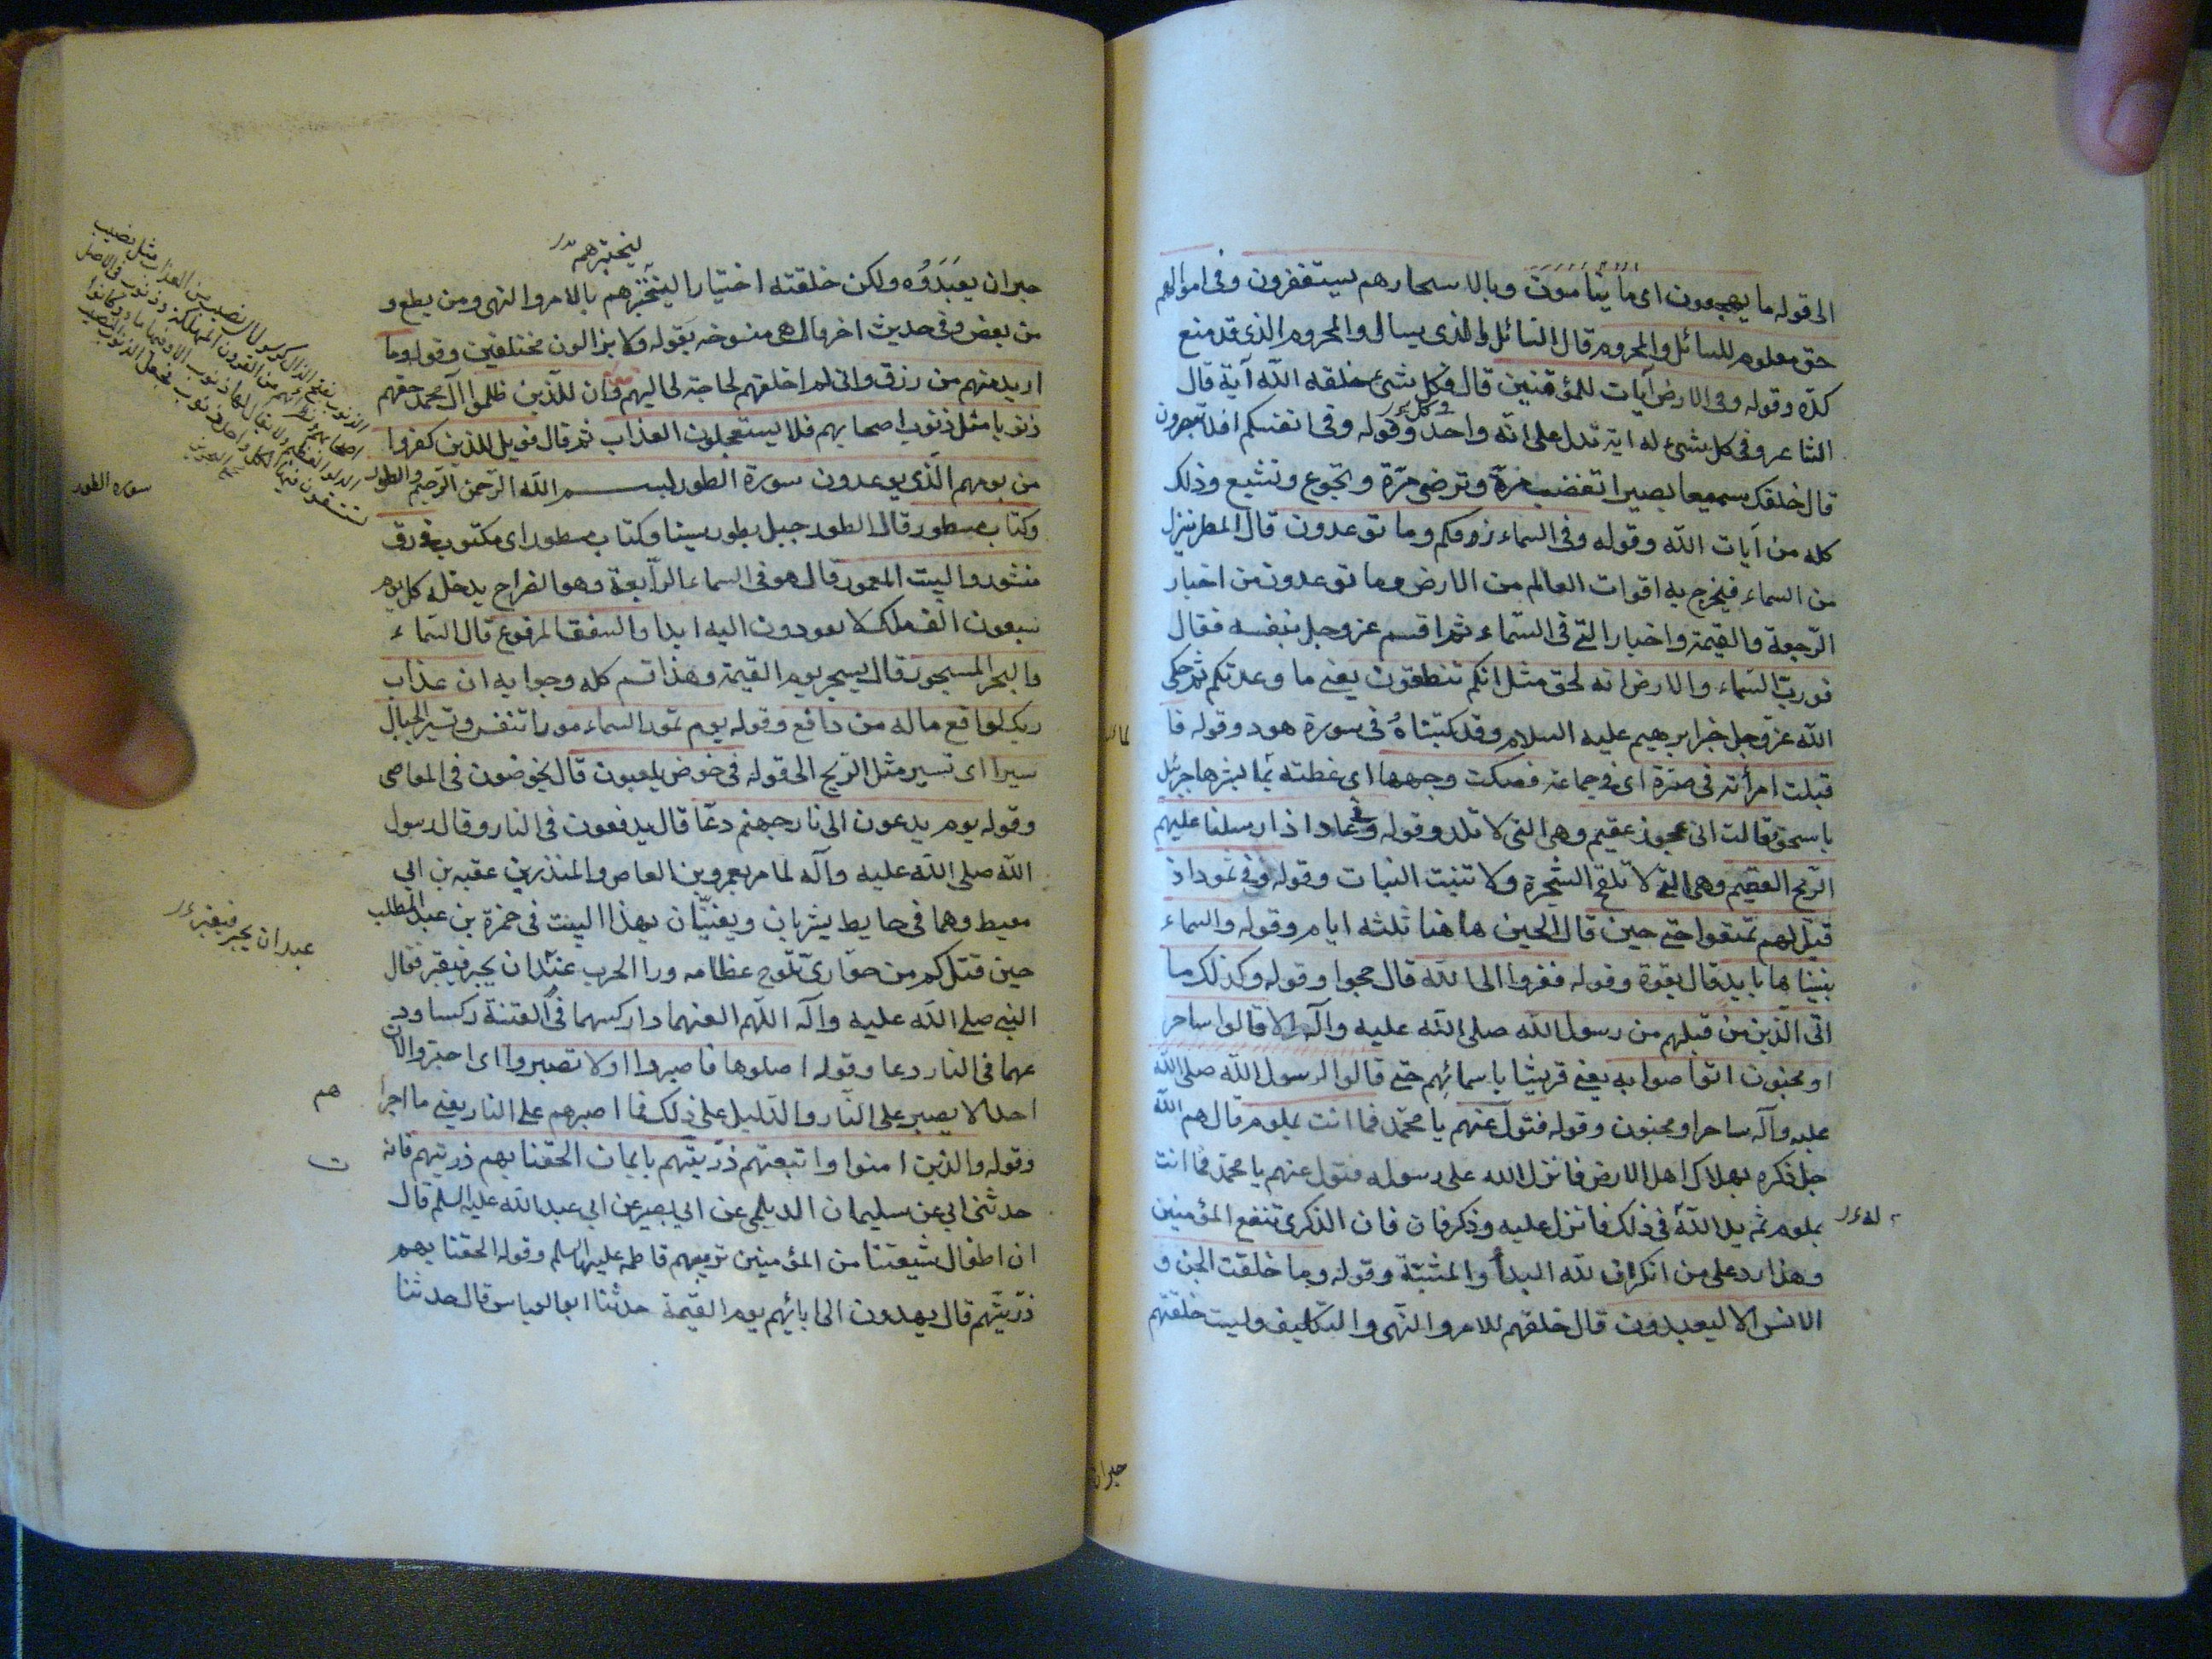 الى قوله ما يهجعون اى ما ينامون وبالاسحار هم يستغفرون وفى اموالهم
حق معلوم للسائل والمحروم قال السائل الذى يسال والمحروم الذى قد منع
كدّه وقوله وفى الارض آيات للمؤقنين قال فى كل شئ خلقه الله آية قال
الشاعر وفى كل شئ له اية تدل على انّه واحد وقوله وفى انفسكم افلا تبصرون
قال خلقك سميعا بصيرا تغضب مرّة وترضى مرّة وتجوع وتشبع وذلك
كله من آيات الله وقوله وفى السماء رزقكم وما توعدون قال المطر ينزل
من السماء فيخرج به اقوات العالم من الارض وما توعدون من اخبار
الرّجعة والقيمة واخبار التى فى السّماء ثم اقسم عز وجل بنفسه فقال
فوربّ السّماء والارض انه لحق مثل انكم تنطقون يعنى ما وعدتكم ثم حكى
الله عزّ وجل خبر ابرهيم عليه السلام وقد كتبناهُ فى سورة هود وقوله فا
قبلت امرأته فى صرّة اى فى جماعة فصكت وجهها اى غطته لما بشرها جبرئيل
باسحق وقالت انى عجوز عقيم وهى التى لا تلد وقوله وفى عاد اذ ارسلنا عليهم
الرّيح العقيم وهى التى لا تلقح الشّجرة ولا تنبت النبات وقوله وفى ثمود اذ
قيل لهم تمتعوا حتى حين قال الحين ها هنا ثلثه ايام وقوله والسماء
بنيناها بايد قال بقوة وقوله ففروا الى الله قال حجوا وقوله وكذلك ما
اتى الّذين من قبلهم من رسول الله صلى الله عليه وآله الا قالوا ساحر
او مجنون اتواصوا به يعنى قريشا باسمائهم حتى قالوا لرسول الله صلى الله
عليه وآله ساحر او مجنون وقوله فتولّ عنهم يا محمّد فما انت بملوم قال هم الله
جل ذكره بهلاك اهل الارض فانزل الله على رسوله فتول عنهم يا محمد فما انت
بملوم ثم بدا لله فى ذلك فانزل عليه وذكر فان فان الذكرى تنفع المؤمنين
وهذا رد على من انكر ان لله البدأ والمشيّة وقوله وما خلقت الجن و
الانس الا ليعبدون قال خلقهم للامر والنّهى والتكليف وليست خلقتهم
جبران
جبر ان يعبَدَوُه ولكن خلقته اختيار ليختبرهم بالامر والنهى ومن يطع و
ليختبرهم
من يعص وفى حديث اخر قال هى منسوخه بقوله ولا يزالون مختلفين وقوله وما
اريد منهم من رزق وانى لم اخلقهم لحاجة لى اليهم وان للّذين ظلموا آل محمد حقهم
ذنوبا مثل ذنوب اصحابهم فلا يستعجلون العذاب ثم قال فويل للذين كفروا
من يومهم الّذى يوعدون سورة الطور بسم الله الرّحمن الرّحيم والطور
سوره الطور
وكتاب مسطور قال الطور جبل بطور سينا وكتاب مسطور اى مكتوب فى رق
منشور والبيت المعمور قال هو فى السماء الرّابعة وهو الضراح يدخله كل يوم
سبعون الف ملك لا يعودون اليه ابدا والسقف المرفوع قال السّماء
والبحر المسجور قال يسجر يوم القيمة وهذا قسم كله وجوابه ان عذاب
ربك لواقع ماله من دافع وقوله يوم تمور السماء مورا تنفس وتسير الجبال
سيرا اى تسير مثل الرّيح الى قوله فى خوض يلعبون قال يخوضون فى المعاصى
وقوله يوم يدعون الى نار جهنم دعّا قال يدفعون فى النار وقال رسول
الله صلى الله عليه وآله لما مر بعمرو بن العاص والمنذر بن عقبه بن ابى
معيط وهما فى حايط يشربان ويغنيّان بهذا البيت فى حمزة بن عبد المطلب
عبد ان يجر فيقبر
حين قتل كم من حوّارىّ تلوح عظامه ورا الحرب عنه ان يجر فيقبر فقال
النبى صلى الله عليه وآله اللّهم العنهما واركسهما فى الفتنة ركسا ود
عهما فى النار دعا وقوله اصلوها فاصبروا او لا تصبروا اى اجترؤا لان
هم
احدا لا يصبر على النّار والدّليل على ذلك فما اصبرهم على النار يعنى ما اجرا
وقوله والذين امنوا واتبعتهم ذرّيتّهم بايمان الحقنا بهم ذريتهم فانه
حدثنى ابى عن سليمان الديلمى عن ابى بصير عن ابى عبد الله عليه السلم قال
ان اطفال شيعتنا من المؤمنين تربيهم فاطمه عليها السلم وقوله الحقنا بهم
ذرّيتّهم قال يهدون الى ابائهم يوم القيمة حدثنا ابو العباس قال حدثنا